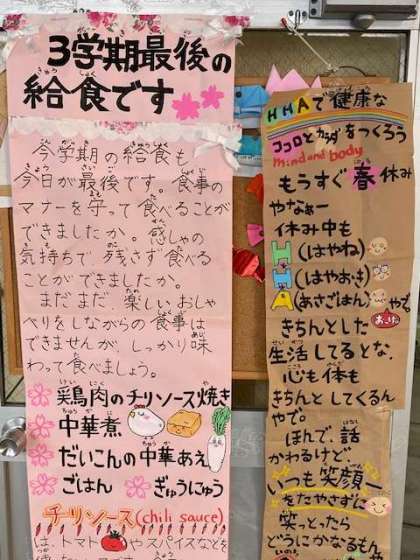 3学期最後の
給食です
今学期の給食も
今日が最後です。食事の
マナーを守って食べることが
できましたか。感しゃの
気持ちで、残さず食べる
ことができましたか。
まだまだ、楽しいおしゃ
べりをしながらの食事は
できませんが、しっかり味
わって食べましょう。
鶏肉のチリソース焼き
中華煮
だいこんの中華あえ
ごはん ぎゅうにゅう
チリソース(chili sauce)
は、トマトやスパイスなどを
HHAで健康な
ココロとカラダをつくろう
mind and body
もうすぐ春休み
やなぁー
休み中も
H(はやね)
H(はやおき)
A(あさごはん)やで。
きちんとした
生活してるとな、
心も体も
きちんとしてくるん
やで。
ほんで、話
かわるけど、
いつも笑顔
をたやさずに
笑っとったら
どうにかなるもん